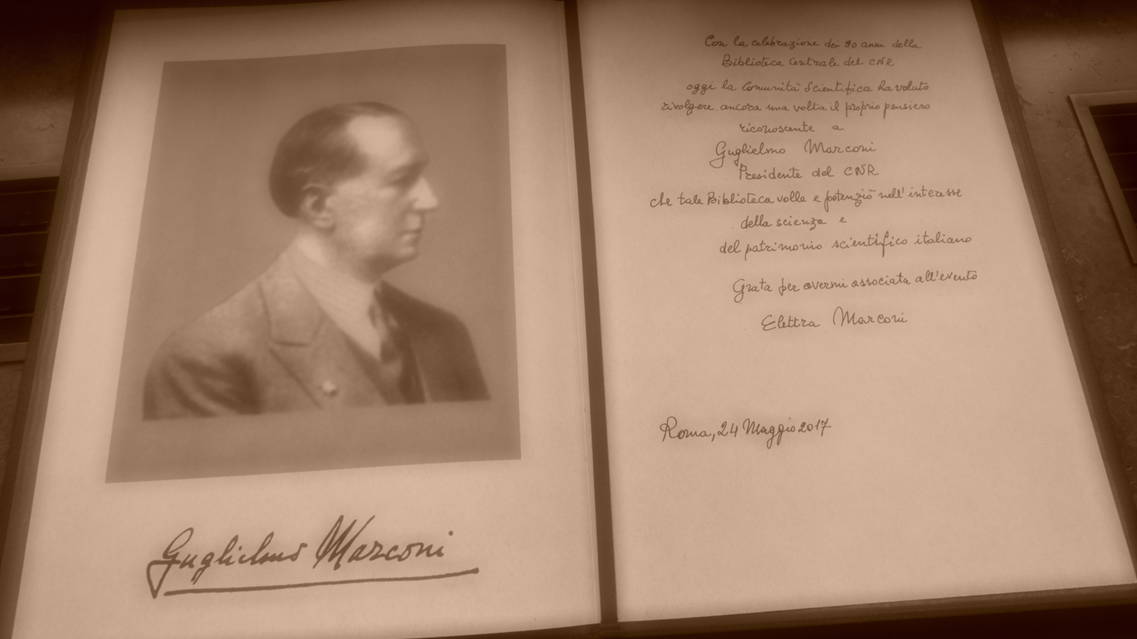 Guglielmo Marconi
Con la celebrazione dei 90 anni della
Biblioteca Centrale del CNR
oggi la Comunità Scientifica ha voluto
rivolgere ancora una volta il proprio pensiero
riconoscente a
Guglielmo Marconi
Presidente del CNR
che tale Biblioteca volle e potenziò nell'interesse
della scienza e
del patrimonio scientifico italiano
Grata per avermi associata all'evento
Elettra Marconi
Roma, 24 Maggio 2017